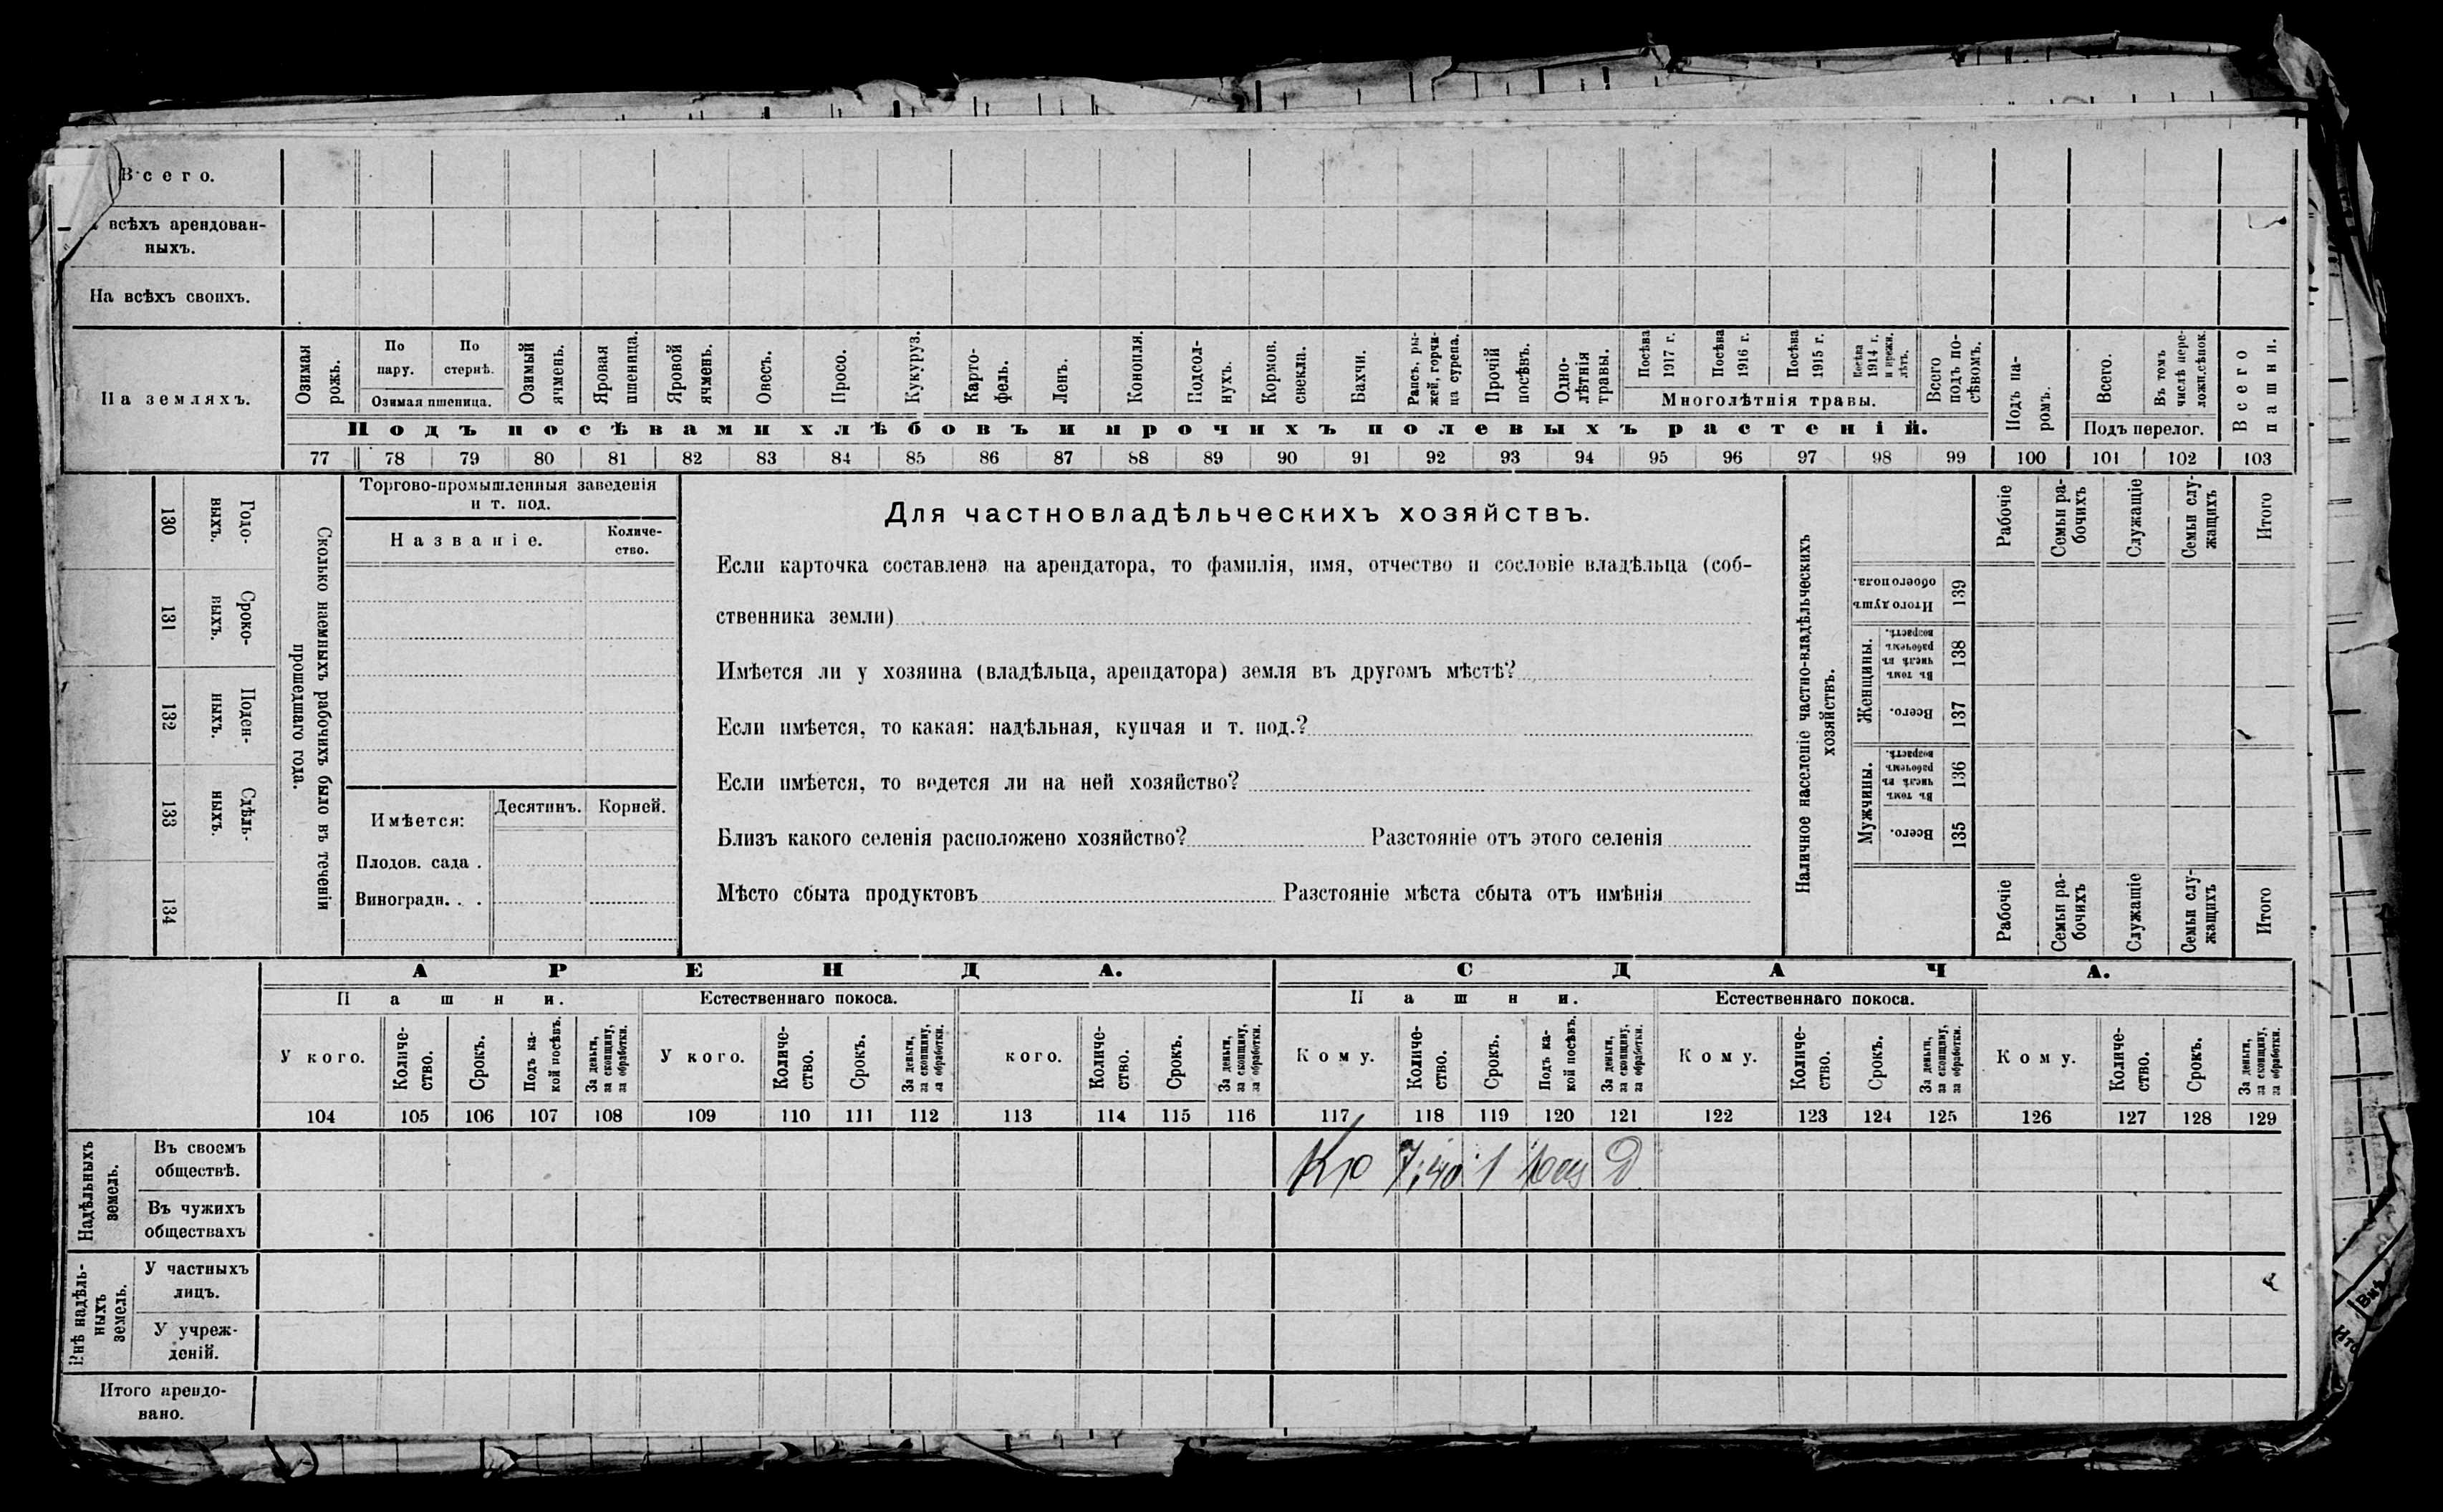 Всего.
всѣхъ арендован-
ныхъ.
На всѣхъ своихъ.
На земляхъ.
Озимая рожь.
По пару.
По стернѣ.
Озимая пшеница.
Озимый ячмень.
Яровая пшеница.
Яровой ячмень.
Овесъ.
Просо.
Кукуруз.
Карто-
фель.
Ленъ.
Конопля.
Подсол-
нухъ.
Кормов. свекла.
Бахчи.
Рапсъ, ры-
жей, горчи-
ца сурепа.
Прочій посѣвъ.
Одно-
лѣтнія травы.
Посѣва 1917 г.
Посѣва 1916 г.
Посѣва 1915 г.
Посѣва 1914 г. и прежн. лѣтъ.
Многолѣтнія травы.
Всего подъ по-
сѣвомъ.
Подъ посѣвами хлѣбовъ и прочихъ полевыхъ растеній.
Подъ па-
ромъ.
Всего.
Въ томъ числѣ пере-
Подъ перелог.
Всего пашни.
77 78 79 80 81 82 83 84 85 86 87 88 89 90 91 92 93 94 95 96 97 98 99 100 101 102 103
130 Годо-
выхъ.
131 Сроко-
выхъ.
132 Поден-
ныхъ.
133 Сдѣль-
ныхъ.
134
Сколько наемныхъ рабочихъ было въ теченіи
прошедшаго года.
Торгово-промышленныя заведенія
и т. под.
Названіе.
Количе-
ство.
Имѣется:
Десятинъ. Корней.
Плодов. сада .
Виноградн. . .
Для частновладѣльческихъ хозяйствъ.
Если карточка составлена на арендатора, то фамилія, имя, отчество и сословіе владѣльца (соб-
ственника земли)
Имѣется ли у хозяина (владѣльца, арендатора) земля въ другомъ мѣстѣ?
Если имѣется, то какая: надѣльная, купчая и т. под.?
Если имѣется, то ведется ли на ней хозяйство?
Близъ какого селенія расположено хозяйство? Разстояніе отъ этого селенія
Мѣсто сбыта продуктовъ Разстояніе мѣста сбыта отъ имѣнія
Наличное населеніе частно-владѣльческихъ
хозяйствъ.
Рабочіе
Семьи ра-
бочихъ
Служащіе
Семьи слу-
жащихъ
Итого
Итого душъ обоего пола. 139
Женщины.
Въ томъ числѣ въ рабочемъ возрастѣ. 138
Всего. 137
Мужчины.
Въ томъ числѣ въ рабочемъ возрастѣ. 136
Всего. 135
Рабочіе
Семьи ра-
бочихъ
Служащіе
Семьи слу-
жащихъ
Итого
АРЕНДА. СДАЧА.
Пашни. Естественнаго покоса. Пашни. Естественнаго покоса.
У кого.
Количе-
ство.
Срокъ.
Подъ ка-
кой посѣвъ.
За деньги, за скопщину, за обработки.
У кого.
Количе-
ство.
Срокъ.
За деньги, за скопщину, за обработки.
кого.
Количе-
ство.
Срокъ.
За деньги, за скопщину, за обработки.
Кому.
Количе-
ство.
Срокъ.
Подъ ка-
кой посѣвъ.
За деньги, за скопщину, за обработки.
Кому.
Количе-
ство.
Срокъ.
За деньги, за скопщину, за обработки.
Кому.
Количе-
ство.
Срокъ.
За деньги, за скопщину, за обработки.
104 105 106 107 108 109 110 111 112 113 114 115 116 117 118 119 120 121 122 123 124 125 126 127 128 129
Надѣльныхъ
земель.
Въ своемъ
обществѣ.
Кр 7,40 1 Д
Въ чужихъ
обществахъ
Внѣ надѣль-
ныхъ
земель.
У частныхъ
лицъ.
У учреж-
деній.
Итого арендо-
вано.